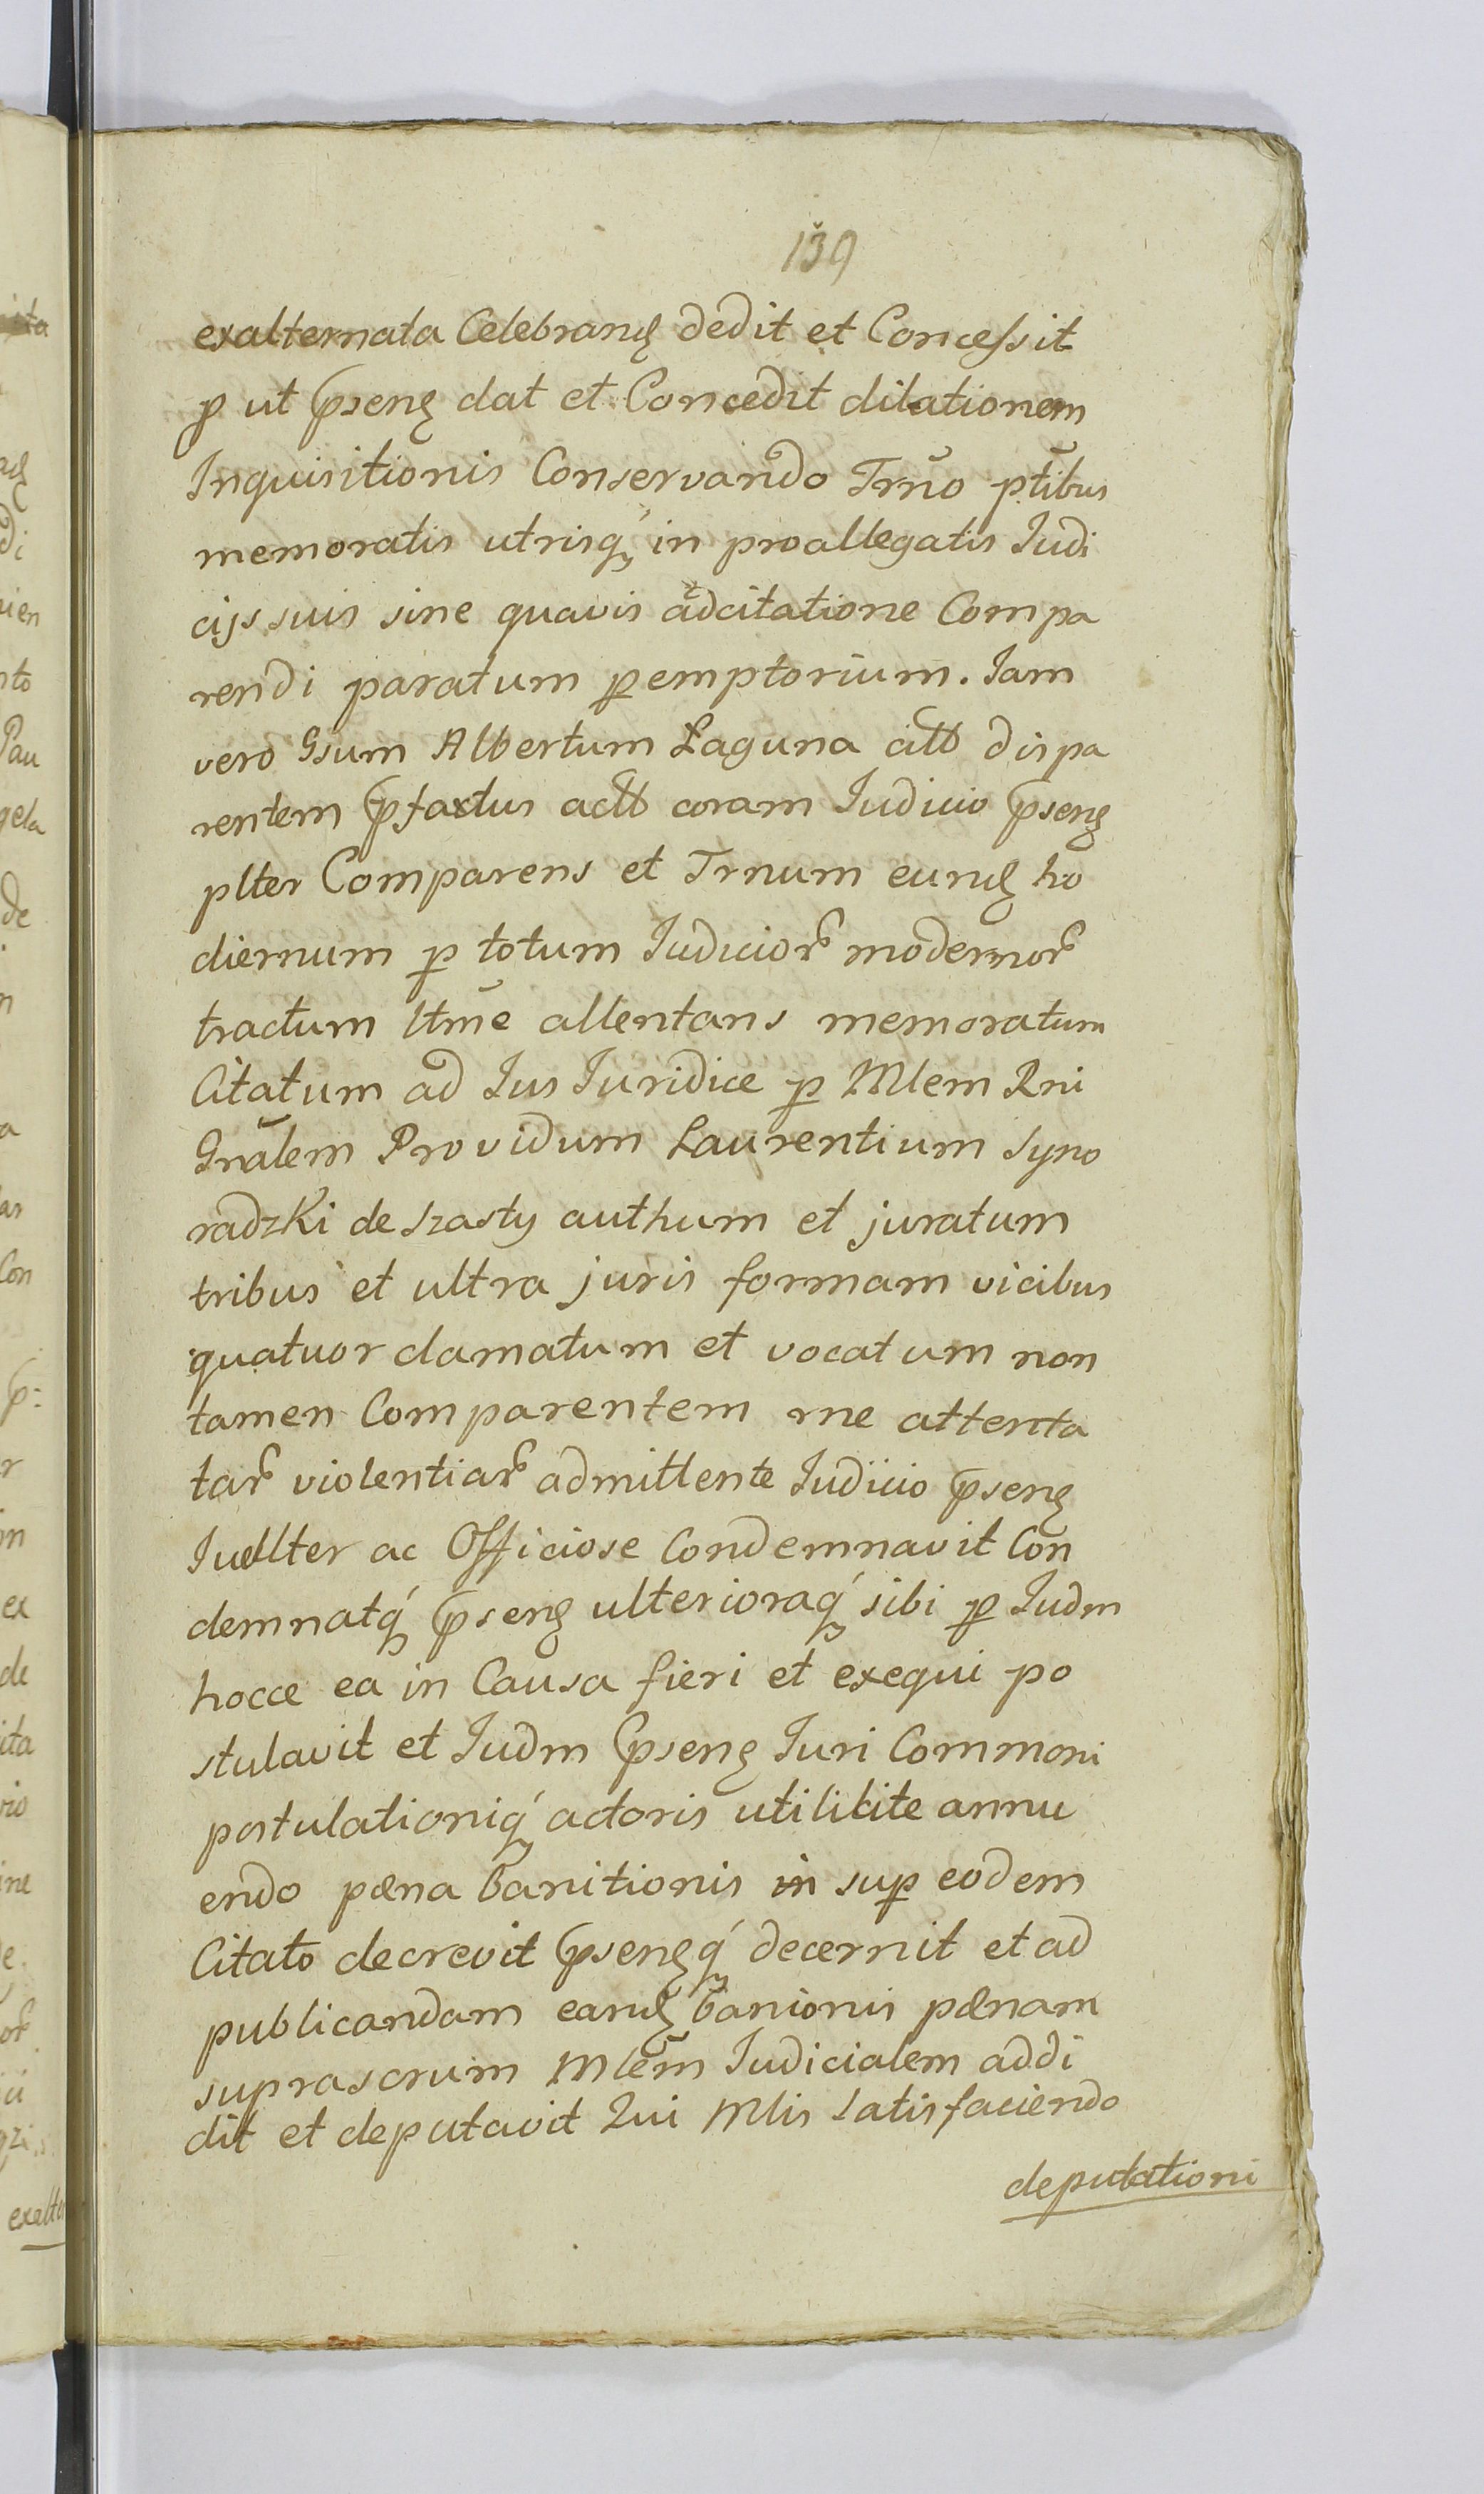 139
exalternata Celebranꝗ dedit et Concessit
ꝓ ut pseng dat et Concedit dilationem
Inquisitionis Conservando Trno ptibus
memoratis utrisq́ in proallegatis Iudi
cijs suis sine quavis adcitatione Compa
rendi paratum ꝑemptorium. Iam
vero Gsum Albertum Laguna citt dispa
rentem pfactus actt coram Iudicio pseng
plter Comparens et Trnum eund ho
diernum ꝑ totum Iudicior modernor
tractum ltme attentans memoratum
Citatum ad Ius Iuridice ꝑ Mlem Rni
Gnalem Providum Laurentium Syno
radzki de Szasty authum et juratum
tribus et ultra juris formam vicibus
quatuor clamatum et vocatum non
tamen Comparentem rne attenta
tar violentiar admittente Iudicio pseng
Iudllter ac Officiose Condemnavit Con
demnatq́ pseng ulterioraq́ sibi ꝑ Iudm
hocce ea in Causa fieri et exequi po
stulavit et Iudm pseng Iuri Commoni
postulationiq́ actoris utilitite annu
endo pæna banitionis in supꝑ eodem
Citato decrevit psengq́ decernit et ad
publicandam eand banionis pænam
suprascrum Mlem Iudicialem addi
dit et deputavit Qui Mlis Satisfaciendo
deputationi